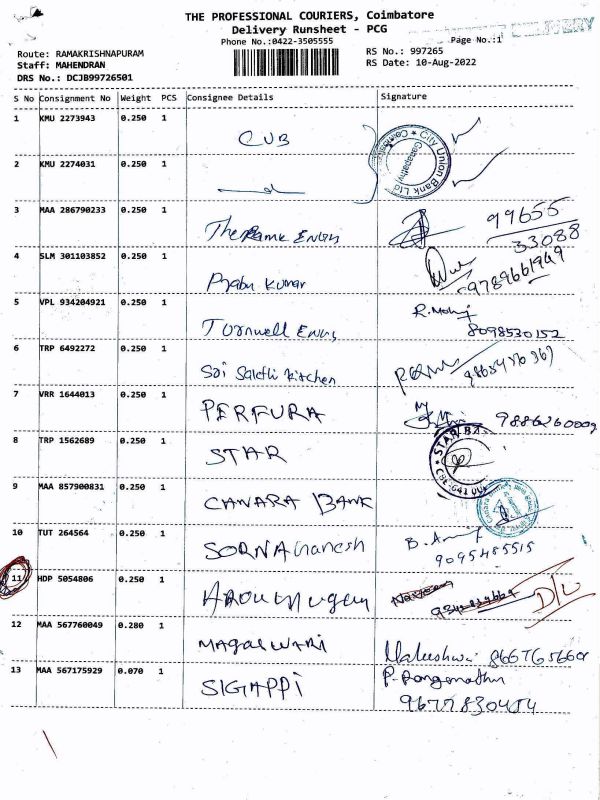 THE PROFESSIONAL COURIERS, Coimbatore
Delivery Runsheet - PCG
DELIVERY
Phone No.:0422-3505555
Page No.:1
Route: RAMAKRISHNAPURAM
RS No.: 997265
Staff: MAHENDRAN
RS Date: 10-Aug-2022
DRS No.: DCJB99726501
S No Consignment No Weight PCS Consignee Details Signature
1 KMU 2273943 0.250 1
CUB
City Union Bank Ltd
Ganapathy
Coimbatore
2 KMU 2274031 0.250 1
3 MAA 286790233 0.250 1
99655
33088
4 SLM 301103852 0.250 1
Prabu Kumar
9789661949
5 VPL 934204921 0.250 1
Turnwell Engs
R. Mohj
8098530152
6 TRP 6492272 0.250 1
Sri Sakthi Kitchen
7 VRR 1644013 0.250 1
PERFURA
8 TRP 1562689 0.250 1
STAR
STAR
9 MAA 857900831 0.250 1
CANARA BANK
10 TUT 264564 0.250 1
SORNA Ganesh
9095485515
11 HDP 5054806 0.250 1
Naveen
D/L
12 MAA 567760049 0.280 1
MAGASWARI
13 MAA 567175929 0.070 1
SIGAPPI
P. Ranganathn
9677830454